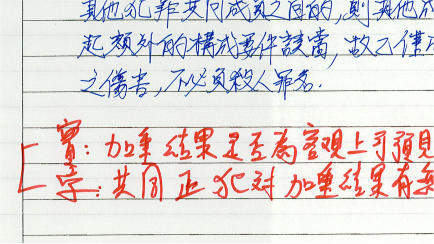 其他犯罪共同成員之目的，則其他成
起額外的構成要件該當，故乙僅
之傷害，不必負殺人罪名.
實：加重結果是否為客觀上可預見
學：共同正犯對加重結果有無